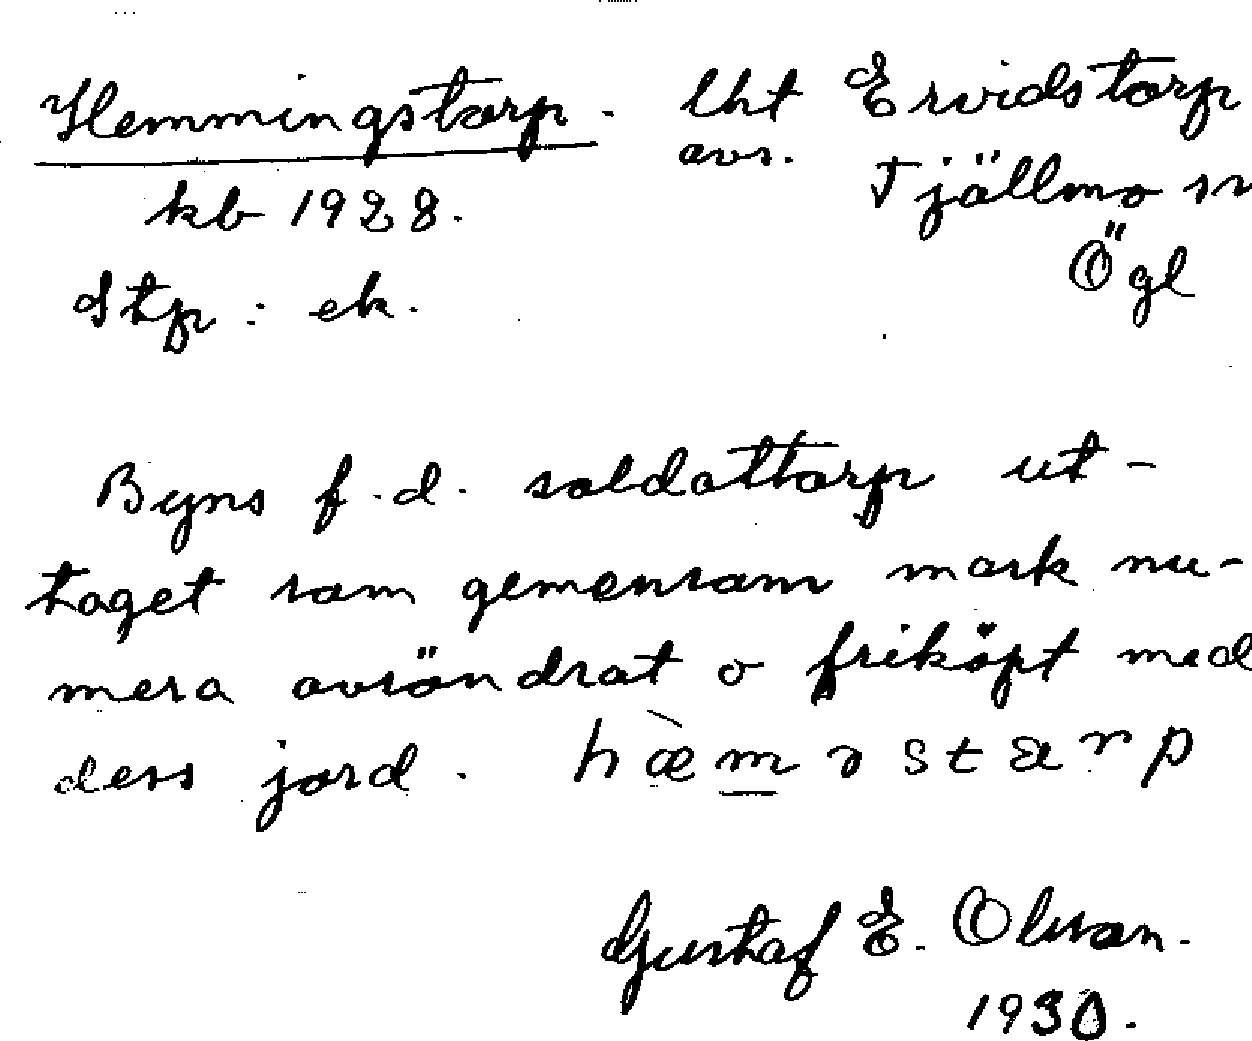 Hemmingstorp. lht Ervidstorp
avs. Tjällmo sn
kb 1928. Ögl
Stp: ek.
Byns f.d. soldattorp ut-
taget som gemensam mark nu-
mera avröndrat o friköpt med
dess jord. hæm starp
Gustaf E. Olsson.
1930.